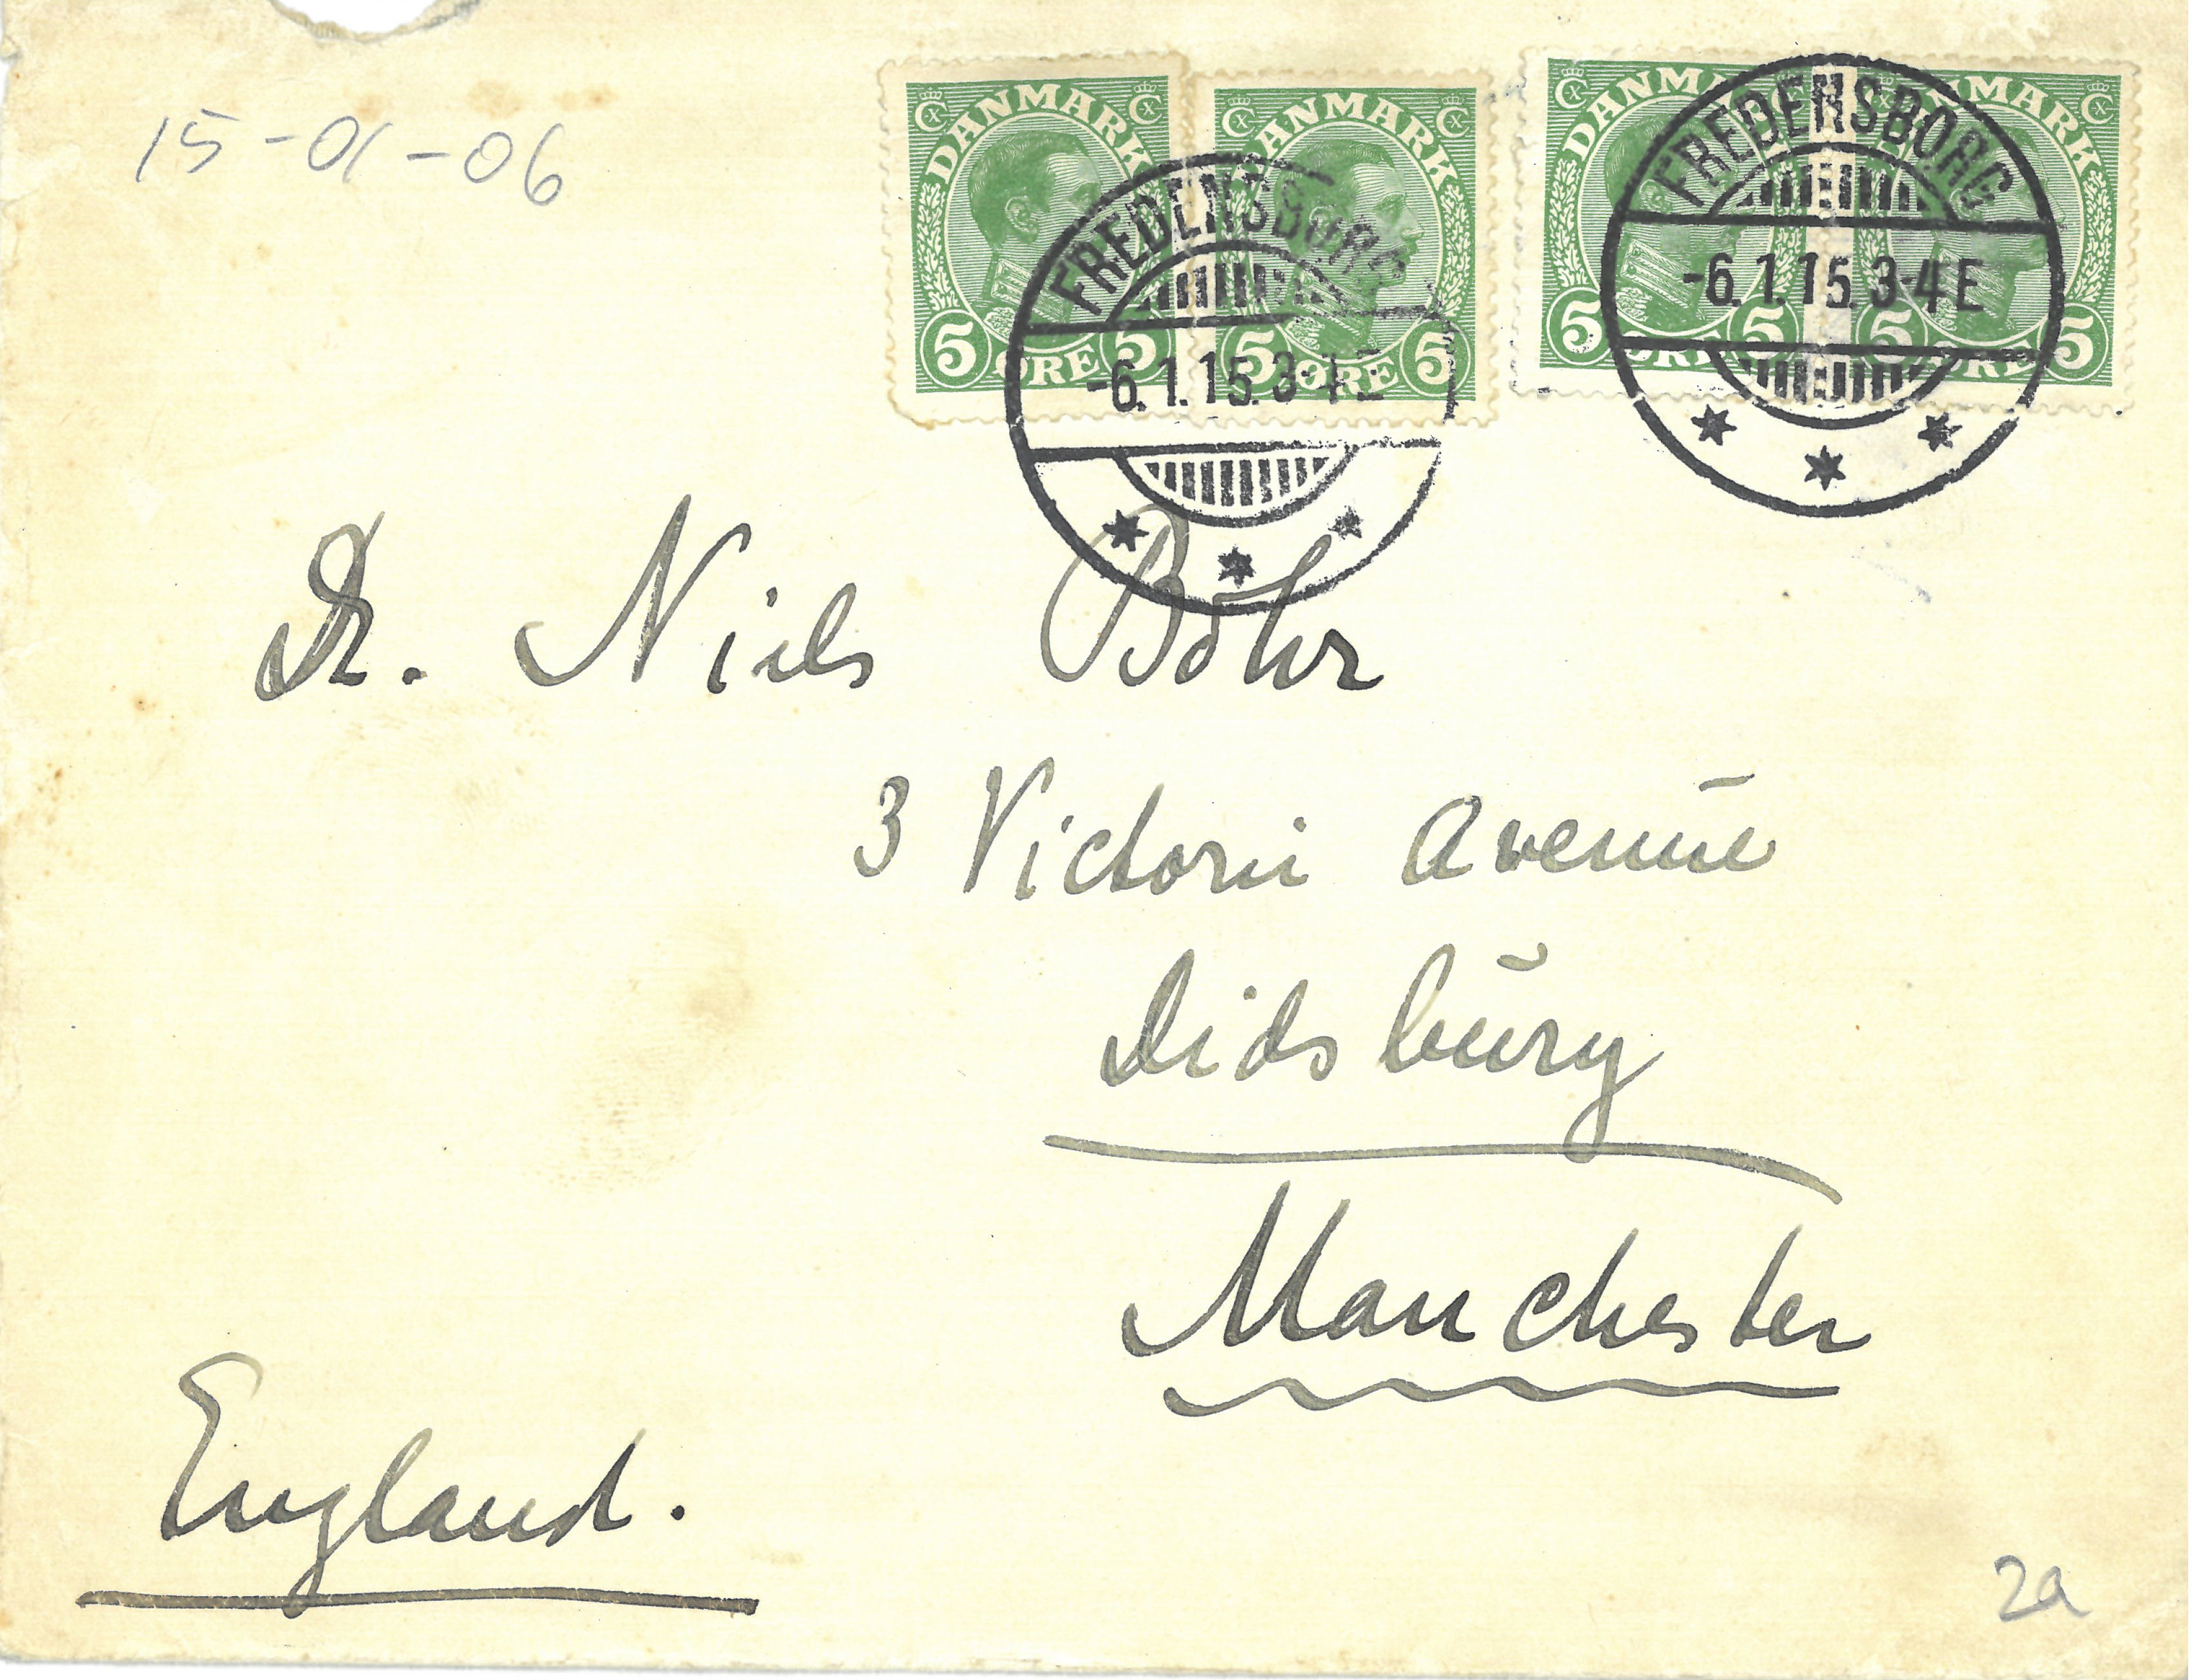 15-01-06
DANMARK
5 ØRE 5
DANMARK
5 ØRE 5
DANMARK
5 ØRE 5
DANMARK
5 ØRE 5
FREDENSBORG
-6.1.15.3-4 E
FREDENSBORG
-6.1.15.3-4 E
Dr. Niels Bohr
3 Victoria Avenue
Didsbury
Manchester
England.
2a